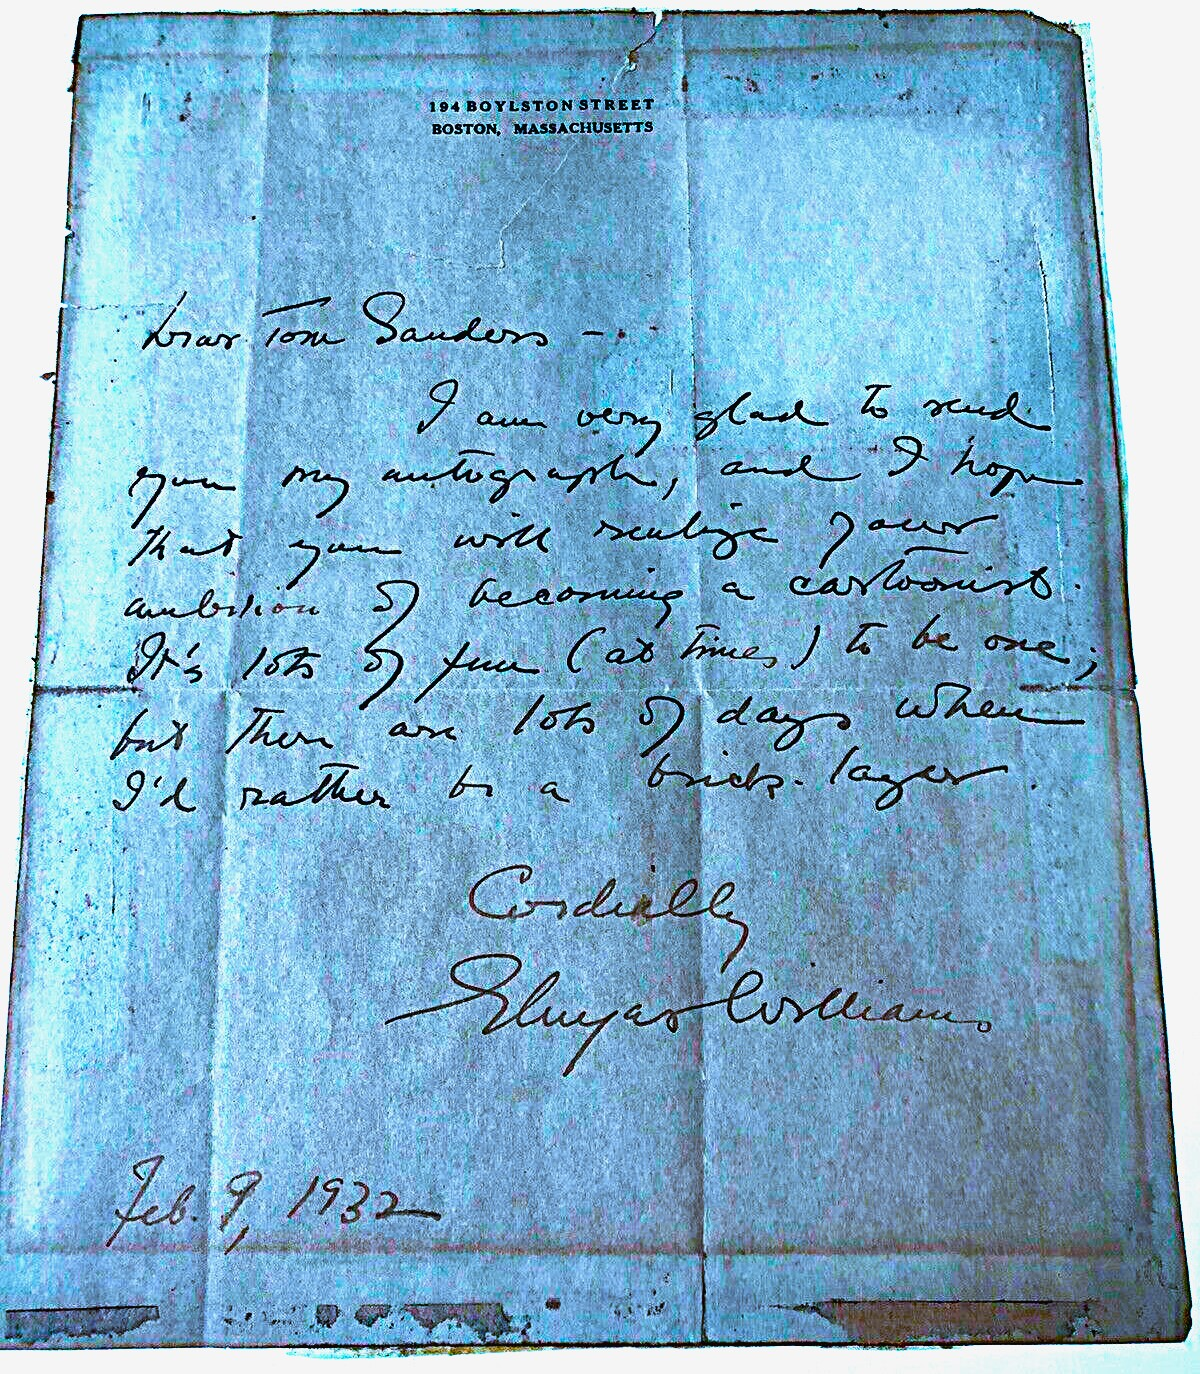 194 BOYLSTON STREET
BOSTON, MASSACHUSETTS
Dear Tom Sanders -
I am very glad to send
you my autograph, and I hope
that you will realize your
ambition of becoming a cartoonist.
It's lots of fun (at times) to be one;
but there are lots of days when
I'd rather be a brick-layer.
Cordially
Gluyas Williams
Feb. 9, 1932